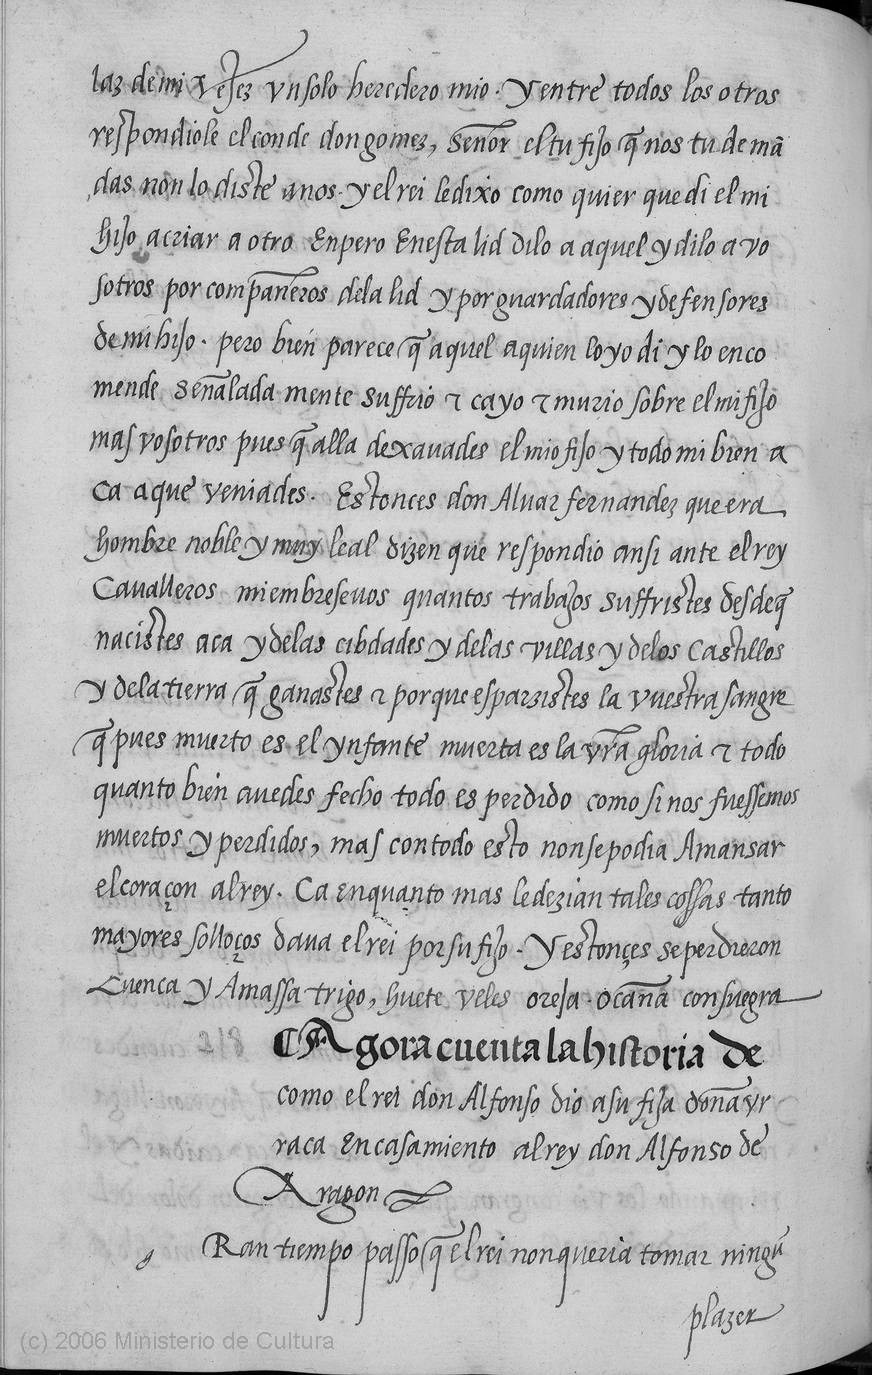 laz de mi vejez vn solo heredero mio. y entre todos los otros
respondiole el conde don gomez, señor el tu fijo q̄ nos tu demã
das non lo diste a nos. y el rei le dixo como quier que di el mi
hijo a criar a otro Enpero En esta lid dilo a aquel y dilo a vo
sotros por compañeros de la lid y por guardadores y defensores
de mi hijo. pero bien parece q̄ aquel a quien lo yo di y lo enco
mende señalada mente suffrio τ cayo τ murio sobre el mi fijo
mas vosotros pues q̄ alla dexauades el mio fijo y todo mi bien a
ca a que veniades. Estonces don Aluar fernandez que era
hombre noble y muy leal dizen que respondio ansi ante el rey
Caualleros miembresevos quantos trabajos suffristes desde q̄
nacistes aca y de las cibdades y de las villas y de los Castillos
y de la tierra q̄ ganastes τ porque esparzistes la vuestra sangre
q̄ pues muerto es el ynfante muerta es la vr̄a gloria τ todo
quanto bien auedes fecho todo es perdido como si nos fuessemos
muertos y perdidos, mas con todo esto non se podia Amansar
el coraçon al rey. Ca enquanto mas le dezian tales cossas tanto
mayores solloços daua el rei por su fijo. y estonçes se perdieron
Cuenca y Amassa trigo, huete veles oreja. ocaña consuegra
218 Agora cuenta la historia de
como el rei don Alfonso dio a su fija doña vr
raca En casamiento al rey don Alfonso de
Aragon
g Ran tiempo passo q̄ el rei non queria tomar ningũ
plazer
(c) 2006 Ministerio de Cultura